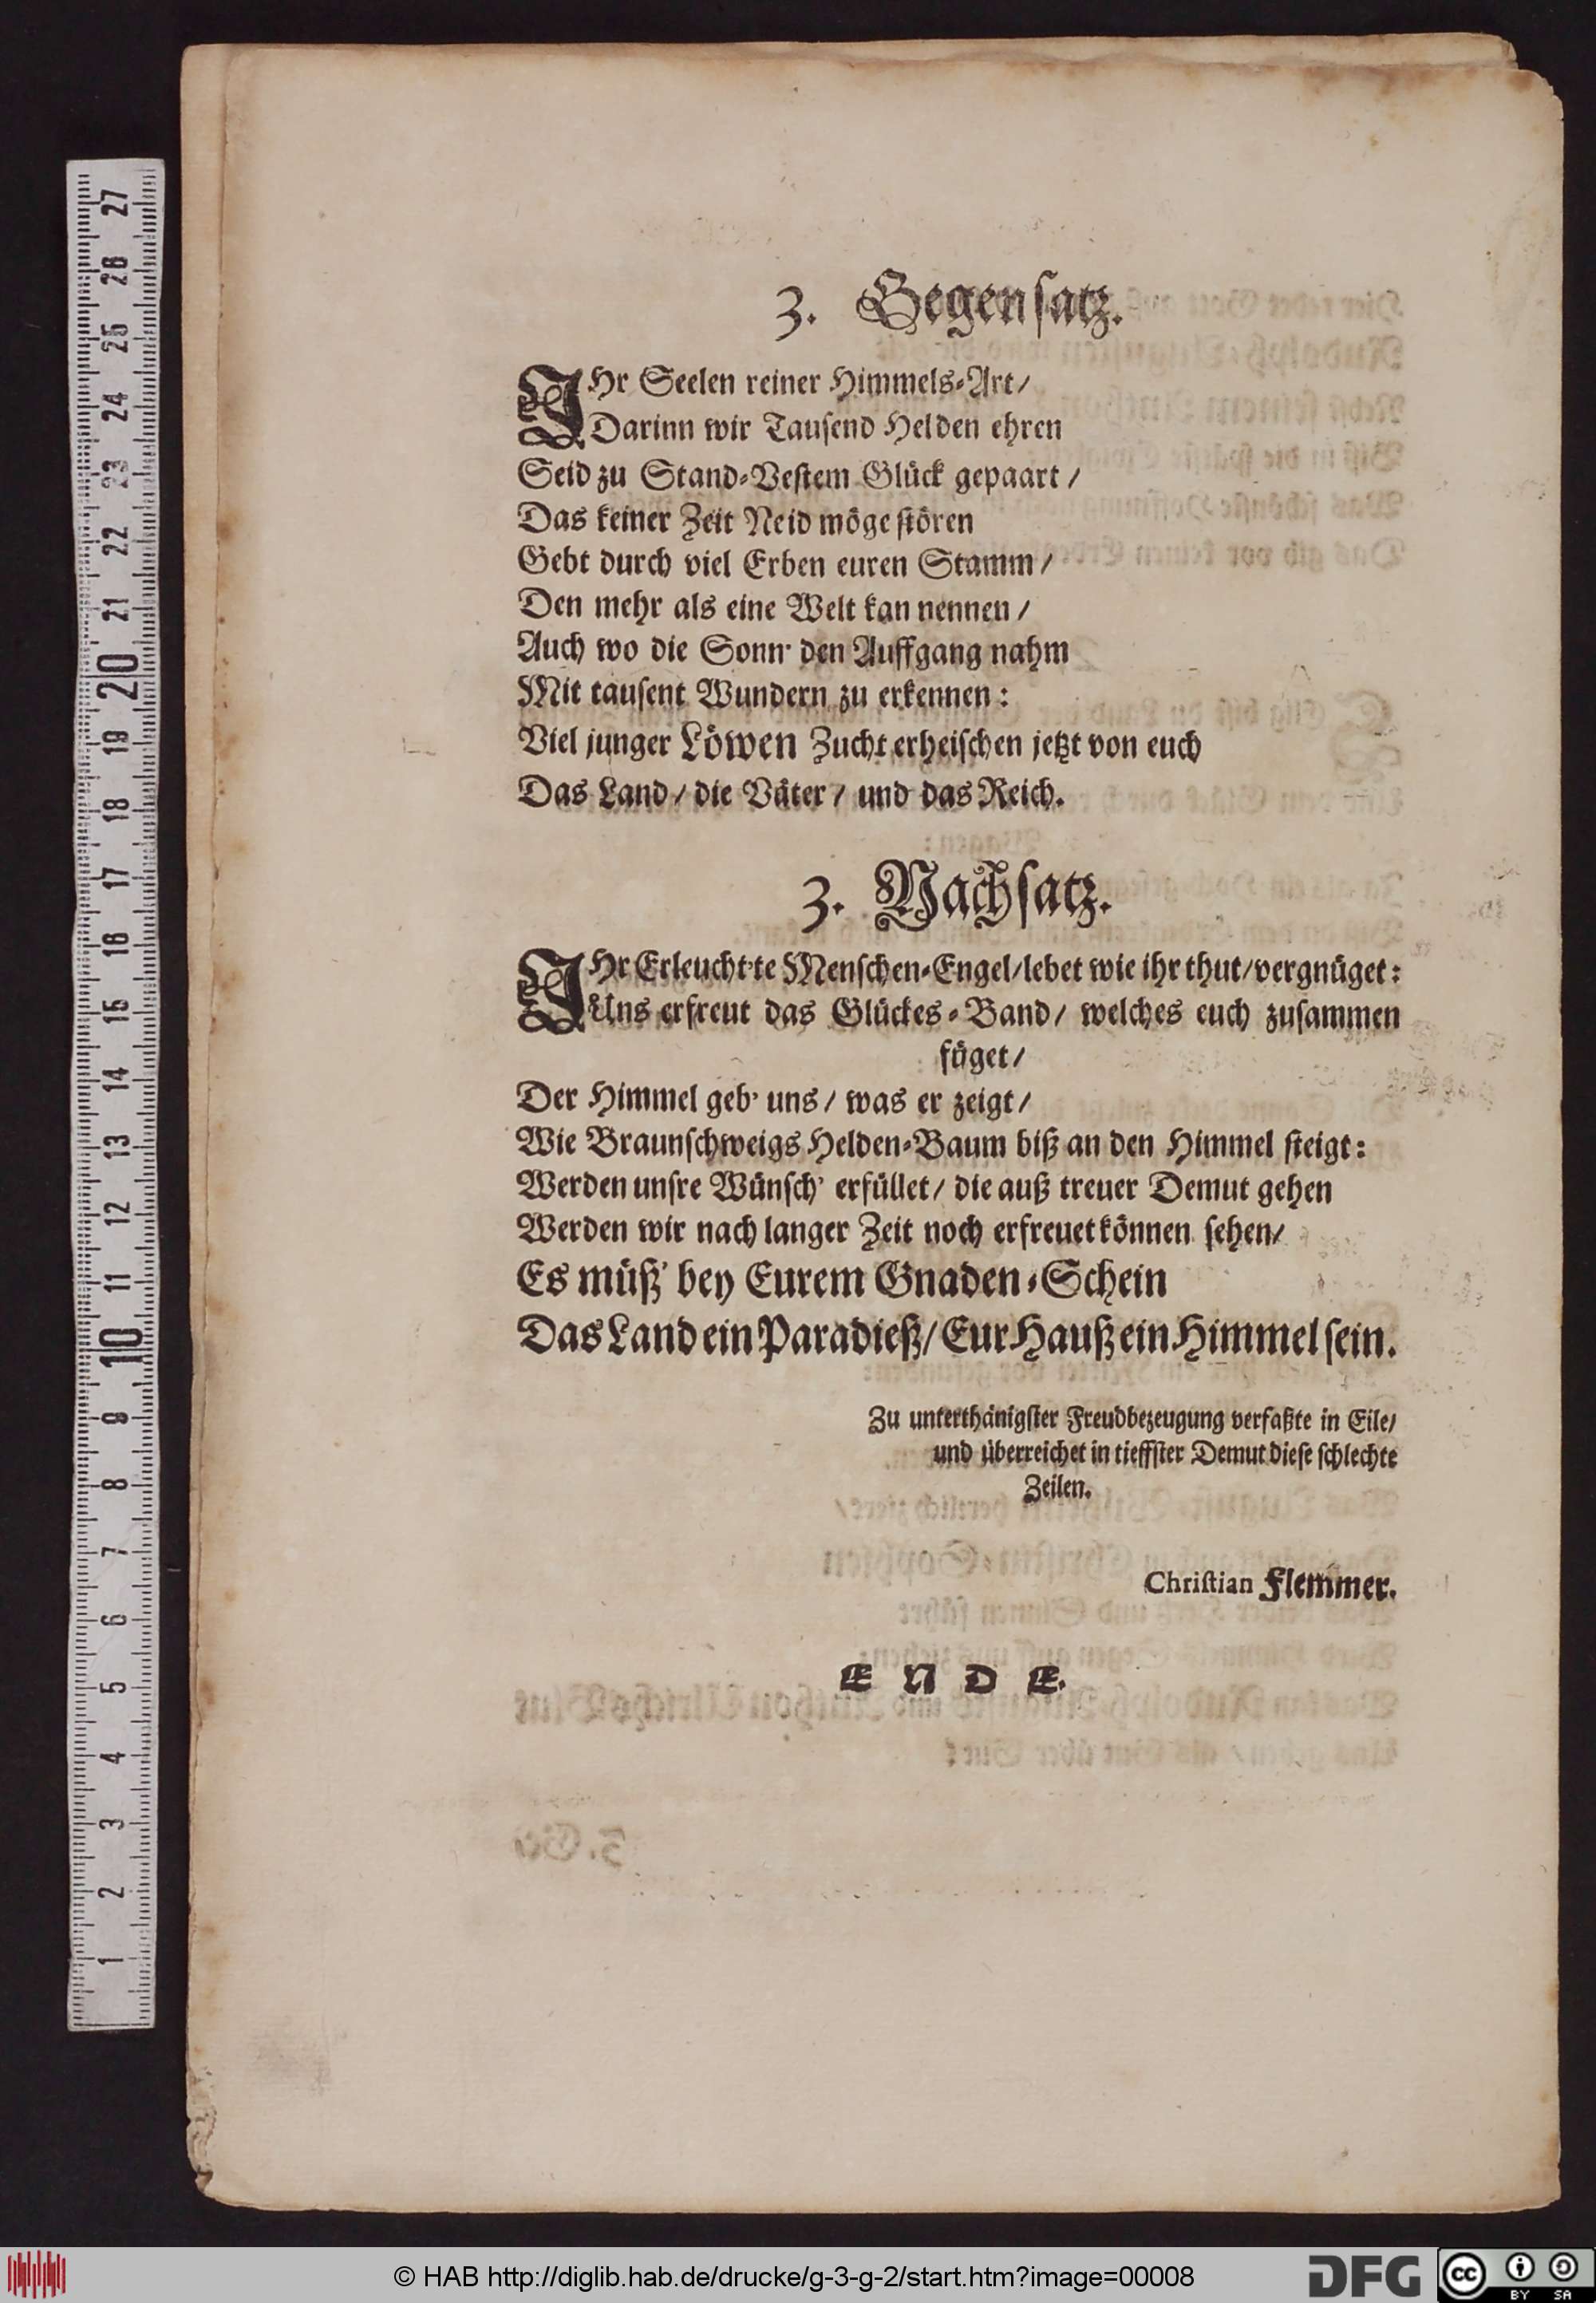 3. Gegensatz.
IHr Seelen reiner Himmels-Art/
Darinn wir Tausend Helden ehren
Seid zu Stand-Vestem Glück gepaart/
Das keiner Zeit Neid möge stören
Gebt durch viel Erben euren Stamm/
Den mehr als eine Welt kan nennen/
Auch wo die Sonn' den Auffgang nahm
Mit tausent Wundern zu erkennen:
Viel junger Löwen Zucht erheischen jetzt von euch
Das Land/ die Väter/ und das Reich.
3. Nachsatz.
IHr Erleucht'te Menschen-Engel/ lebet wie ihr thut/ vergnüget:
Uns erfreut das Glückes-Band/ welches euch zusammen
füget/
Der Himmel geb' uns/ was er zeigt/
Wie Braunschweigs Helden-Baum biß an den Himmel steigt:
Werden unsre Wünsch' erfüllet/ die auß treuer Demut gehen
Werden wir nach langer Zeit noch erfreuet können sehen/
Es müß' bey Eurem Gnaden-Schein
Das Land ein Paradieß/ Eur Hauß ein Himmel sein.
Zu unterthänigster Freudbezeugung verfaßte in Eile/
und überreichet in tieffster Demut diese schlechte
Zeilen.
Christian Flemmer.
E N D E.
27
26
25
24
23
22
21
20
19
18
17
16
15
14
13
12
11
10
9
8
7
6
5
4
3
2
1
© HAB http://diglib.hab.de/drucke/g-3-g-2/start.htm?image=00008
DFG
cc
BY SA